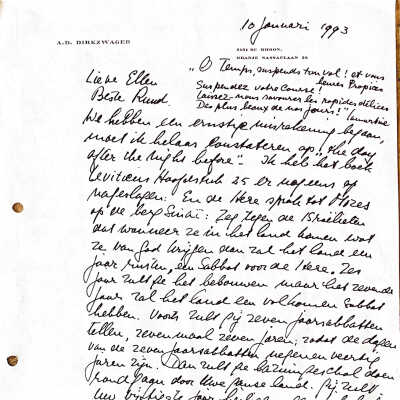 10 januari 1993
A.D. DIRKZWAGER
ORANJE NASSAULAAN 28
Lieve Ellen
Beste Ruud.
"O Temps, suspends ton vol! et vous
heures propices
Suspendez votre Course!
Laissez-nous savourez les rapides délices
Des plus beaux de nos jours!" Lamartine
We hebben een ernstige misrekening begaan,
moet ik helaas constateren op "the day
after the night before". Ik heb het boek
Leviticus Hoofdstuk 25 er nog eens op
nageslagen: En de Here sprak tot Mozes
op de berg Sinaï: Zeg tegen de Israëlieten
dat wanneer ze in het land komen wat
ze van God krijgen dan zal het land een
jaar rusten, een Sabbat voor de Here. Zes
jaar zult ge het bebouwen maar het zevende
jaar zal het land een volkomen sabbat
hebben. Voorts zult gij zeven jaarsabbatten
tellen, zevenmaal zeven jaren; zodat de dagen
van de zeven jaarsabbatten negenenveertig
jaren zijn. Dan zult ge bazuingeschal doen
rondgaan door Uwe ganse land. Gij zult